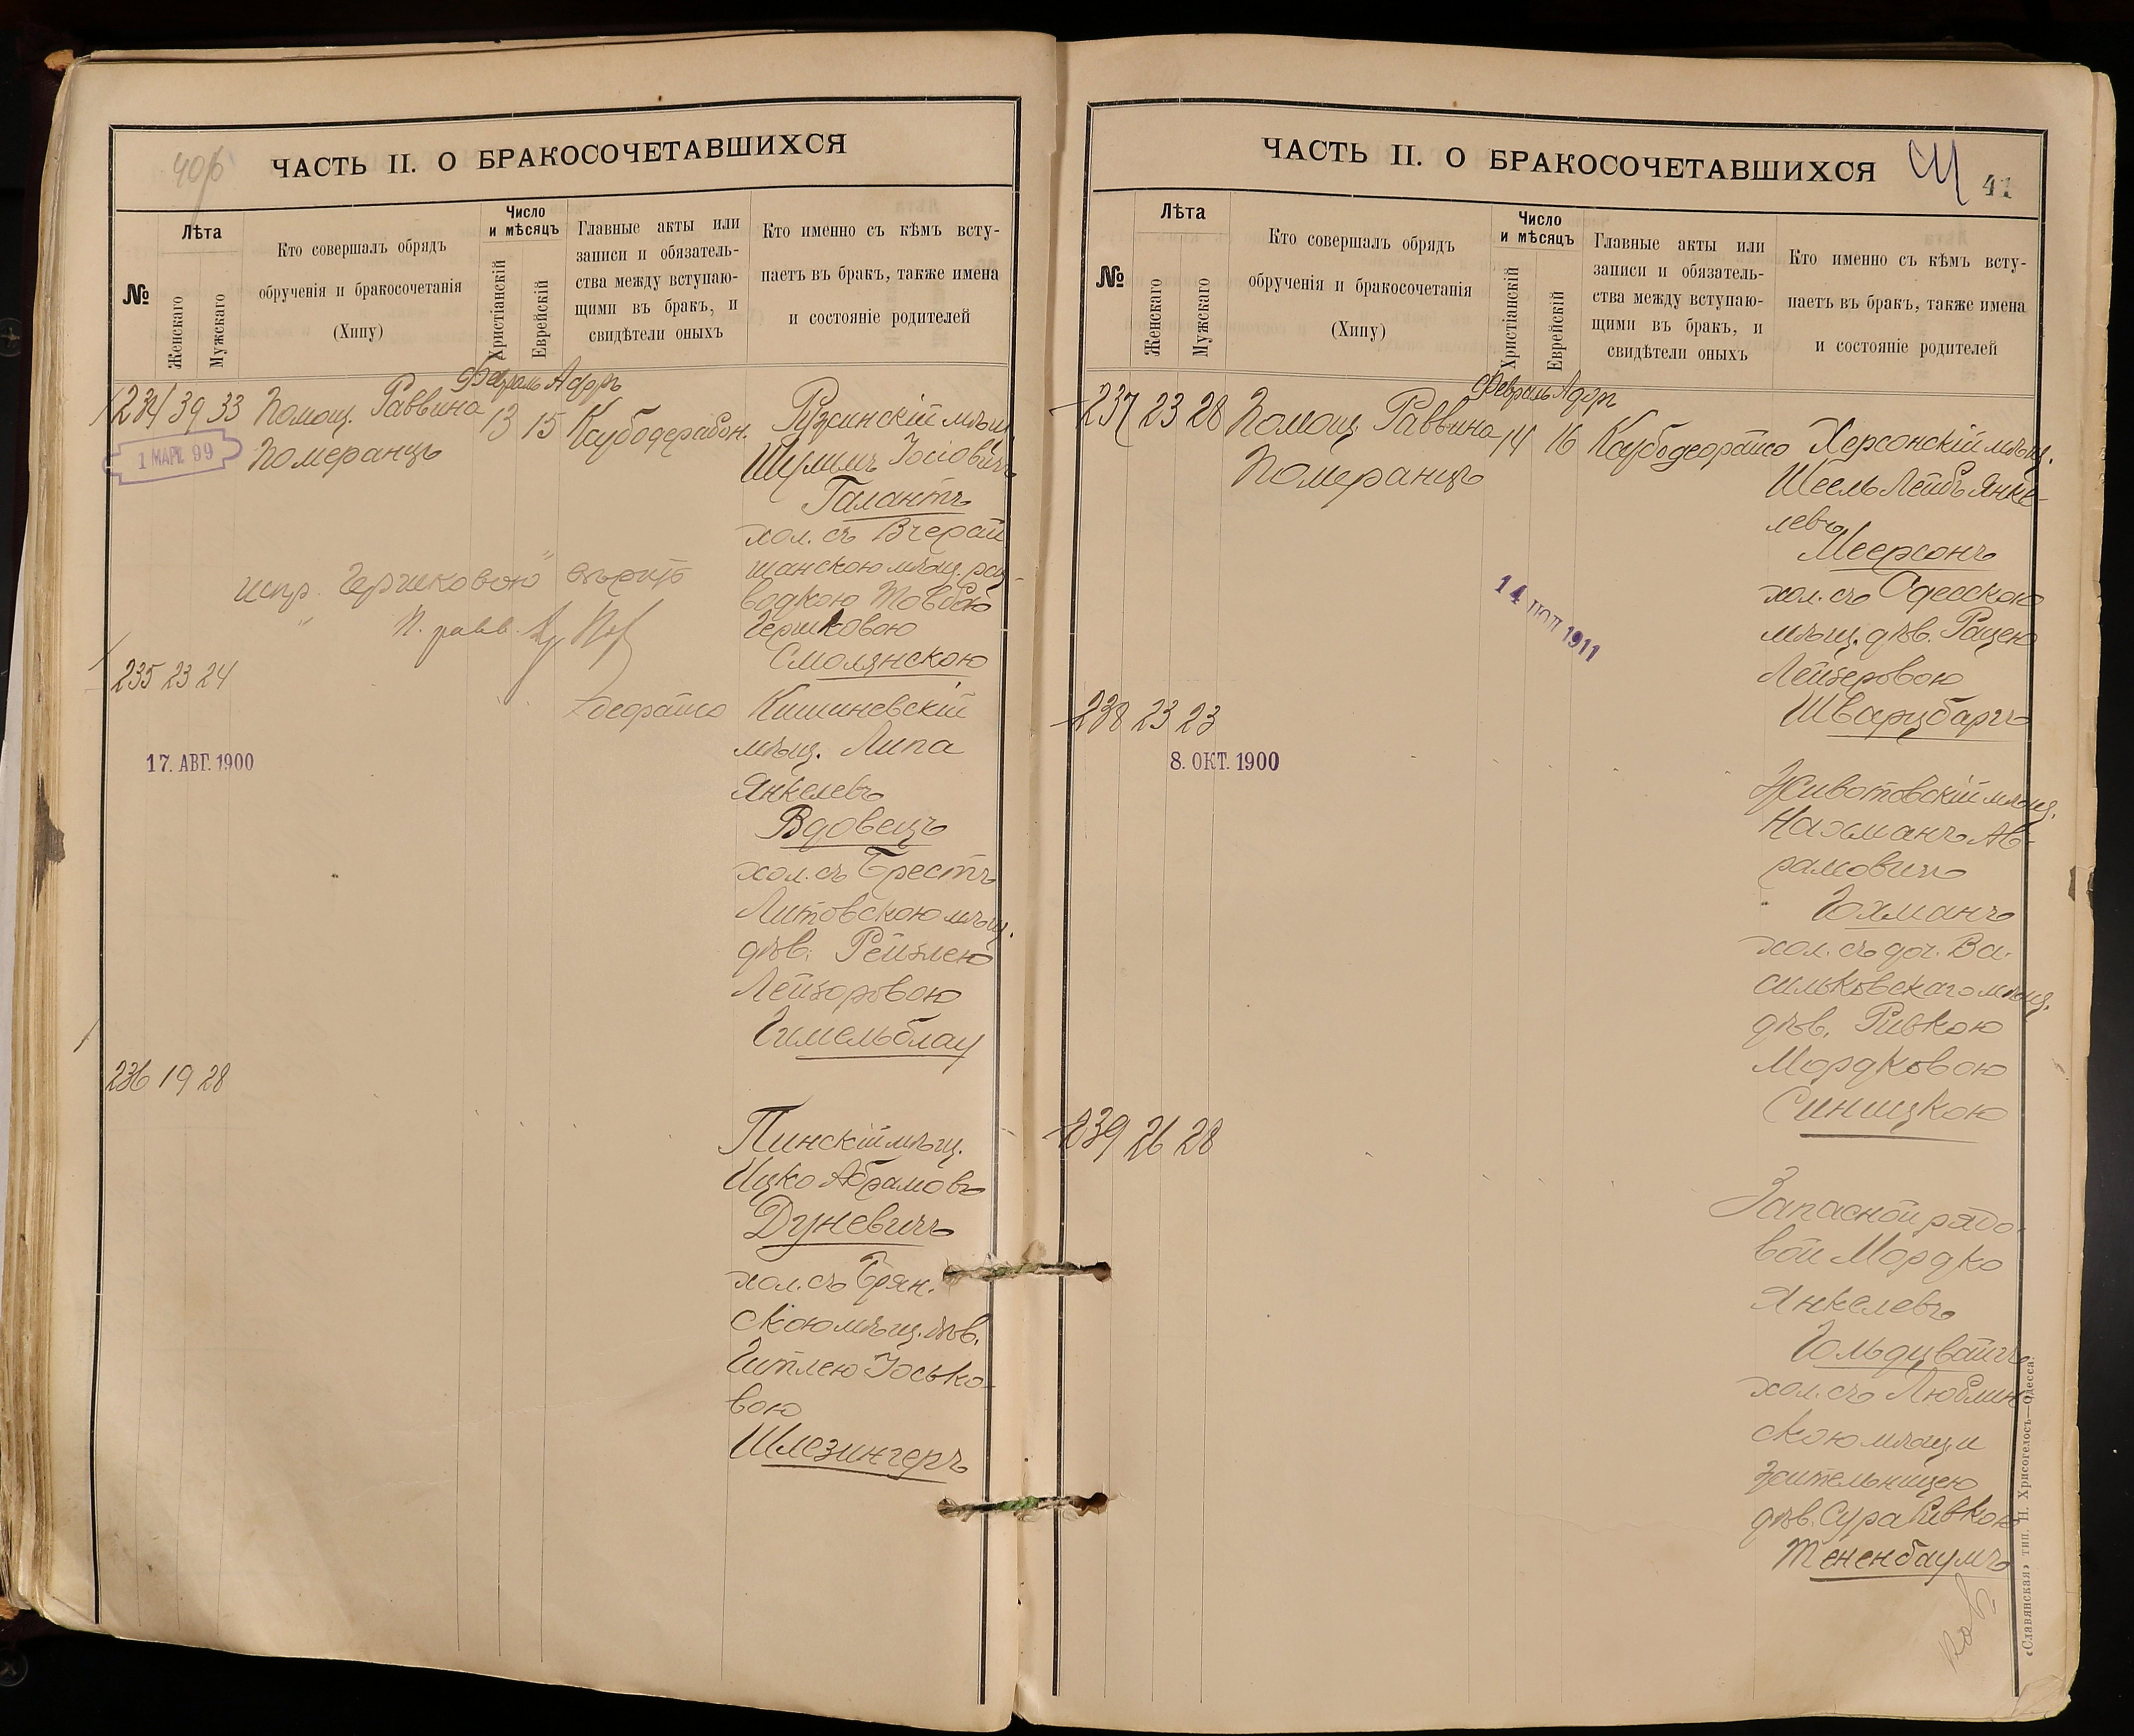 40б
ЧАСТЬ II. О БРАКОСОЧЕТАВШИХСЯ
№
Лѣта
Женскаго
Мужскаго
Кто совершалъ обрядъ
обрученія и бракосочетанія
(Хипу)
Число
и мѣсяцъ
Христіанскій
Еврейскій
Главные акты или
записи и обязатель-
ства между вступаю-
щими въ бракъ, и
свидѣтели оныхъ
Кто именно съ кѣмъ всту-
паетъ въ бракъ, также имена
и состояніе родителей
Февраль Адаръ
234 39 33 Помощ. Раввина 13 15
Померанцъ
1 МАР. 99
мѣщ.
Шулимъ Іосіовичъ
Галантъ
хол. съ Вчерай
шанскою мѣщ. раз
водкою Товбою
Гершковою
Смолянскою
испр. "Гершковою" вѣрить
П. равв.
235 23 24
17. АВГ. 1900
деорайсо
Кишиневскій
мѣщ. Липа
Янкелевъ
Вдовецъ
хол. съ Брестъ
Литовскою мѣщ.
дѣв. Рейзлею
Лейзоровою
Гимельблау
236 19 28
Пинскій мѣщ.
Ицко Абрамовъ
Дуневичъ
хол. съ Брян.
скою мѣщ. дѣв.
Гитлею Іосько-
вою
Шлезингеръ
ЧАСТЬ II. О БРАКОСОЧЕТАВШИХСЯ
41
№
Лѣта
Женскаго
Мужскаго
Кто совершалъ обрядъ
обрученія и бракосочетанія
(Хипу)
Число
и мѣсяцъ
Христіанскій
Еврейскій
Главные акты или
записи и обязатель-
ства между вступаю-
щими въ бракъ, и
свидѣтели оныхъ
Кто именно съ кѣмъ всту-
паетъ въ бракъ, также имена
и состояніе родителей
Февраль Адаръ
237 23 28 Помощ. Раввина 14 16 Ксубодеорайсо
Померанцъ
Херсонскій мѣщ.
Шеель Лейбъ Янке-
левъ
Меерсонъ
хол. съ Одесскою
мѣщ. дѣв. Рацею
Лейзеровою
Шварцбаргъ
238 23 23
8. ОКТ. 1900
Животовскій мѣщ.
Нахманъ Ав-
рамовичъ
Гохманъ
хол. съ доч. Ва-
сильковскаго мѣщ.
дѣв. Ривкою
Мордковою
Синицкою
239 26 28
Запасной рядо-
вой Мордко
Янкелевъ
Гольдцвайгъ
хол. съ Люблин
скою
жительницею
дѣв. Сура Ривкою
Тененбаумъ
«Славянская» тип. Н. Хрисогелосъ—Одесса.